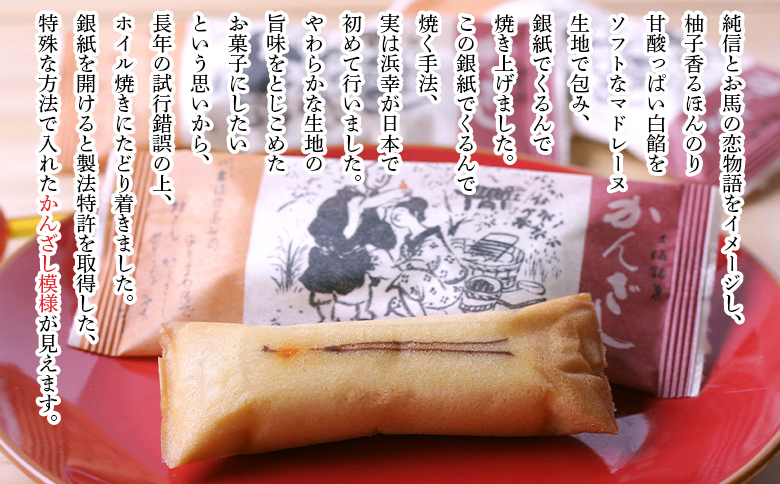 純信とお馬の恋物語をイメージし、
柚子香るほんのり
甘酸っぱい白餡を
ソフトなマドレーヌ
生地で包み、
銀紙でくるんで
焼き上げました。
この銀紙でくるんで
焼く手法、
実は浜幸が日本で
初めて行いました。
やわらかな生地の
旨味をとじこめた
お菓子にしたい
という思いから、
長年の試行錯誤の上、
ホイル焼きにたどり着きました。
銀紙を開けると製法特許を取得した、
特殊な方法で入れたかんざし模様が見えます。
土佐銘菓
かんざし